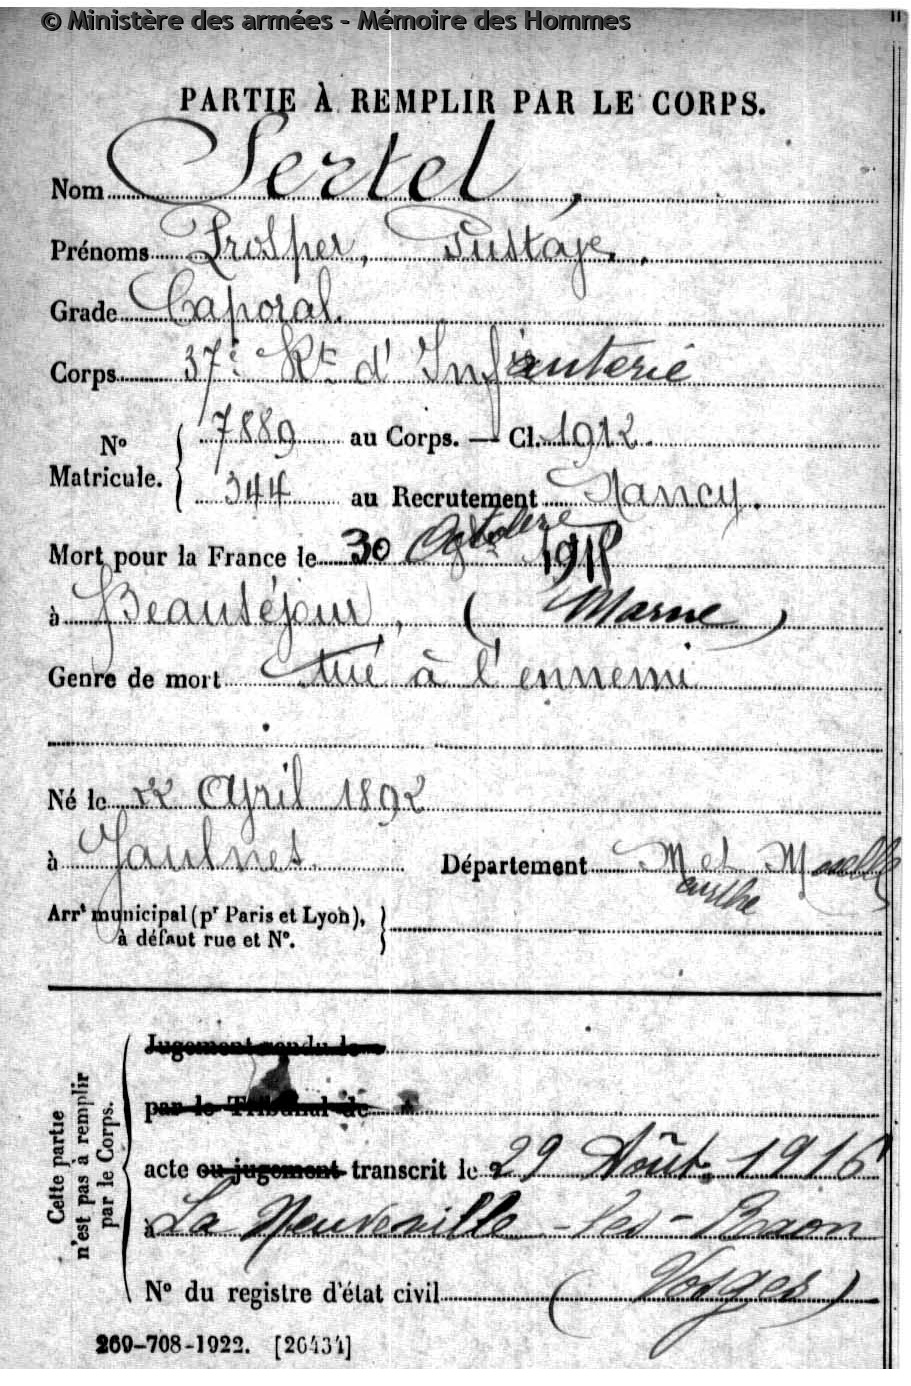 © Ministère des armées - Mémoire des Hommes
PARTIE À REMPLIR PAR LE CORPS.
Nom Sertel,
Prénoms Prosper, Gustave,
Grade Caporal.
Corps 37e Rt d'Infanterie
N° Matricule. 7889 au Corps. — Cl. 1912
344 au Recrutement Nancy.
Mort pour la France le 30 Octobre 1915
à Beauséjour, (Marne)
Genre de mort tué à l'ennemi
Né le 22 Avril 1892
à Jaulnes Département M et Moselle
eurthe
Arrt municipal (pr Paris et Lyon),
à défaut rue et N°.
Cette partie
n'est pas à remplir
par le Corps.
Jugement rendu le
par le Tribunal de
acte ou jugement transcrit le 29 Août 1916
à La Neuveville-les-Raon
N° du registre d'état civil (Vosges)
269-708-1922. [26434]